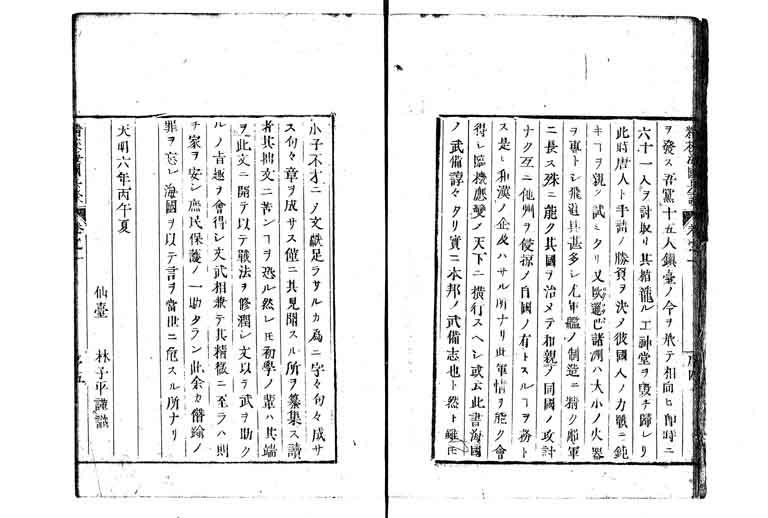 ヲ發ス吾黨十五人鎭臺ノ令ヲ承テ相向ヒ即時ニ
六十一人ヲ討取リ其船龍ル工神堂ヲ毀チ歸レリ
此時唐人ト手詰ノ勝負ヲ決ノ彼國人ノ力戰ニ鈍
キヿヲ親ク試ミタリ又歐邏巴諸洲ハ大小ノ火器
ヲ專トシ飛道具甚多シ尤軍艦ノ制造ニ精ク船軍
ニ長ス殊ニ能ク其國ヲ治メテ和親ノ同國ノ攻討
ナク互ニ他州ヲ侵掠ノ自國ノ有トスルヿヲ務ト
ス是レ和漢ノ企及ハサル所ナリ此軍情ヲ能ク會
得シ臨機應變ノ天下ニ橫行スヘシ或云此書海國
ノ武備諄々タリ實ニ本邦ノ武備志也ト然ト雖𪜈
小子不才ニノ文獻足ラサルカ為ニ字々句々成サ
ス句々章ヲ成サス僅ニ其見聞スル所ヲ纂集ス讀
者其拙文ニ苦ンヿヲ恐ル然レ𪜈初學ノ輩ハ其端
ヲ此文ニ開テ以テ戰法ヲ修潤シ文以テ武ヲ助ク
ルノ旨趣ヲ會得シ文武相兼テ其精微ニ至ラハ則
チ家ヲ安シ庶民保護ノ一助タラン此余カ僭踰ノ
罪ヲ忘レ海國ヲ以テ言ヲ當世ニ危スル所ナリ
天明六年丙午夏
仙臺 林子平謹識